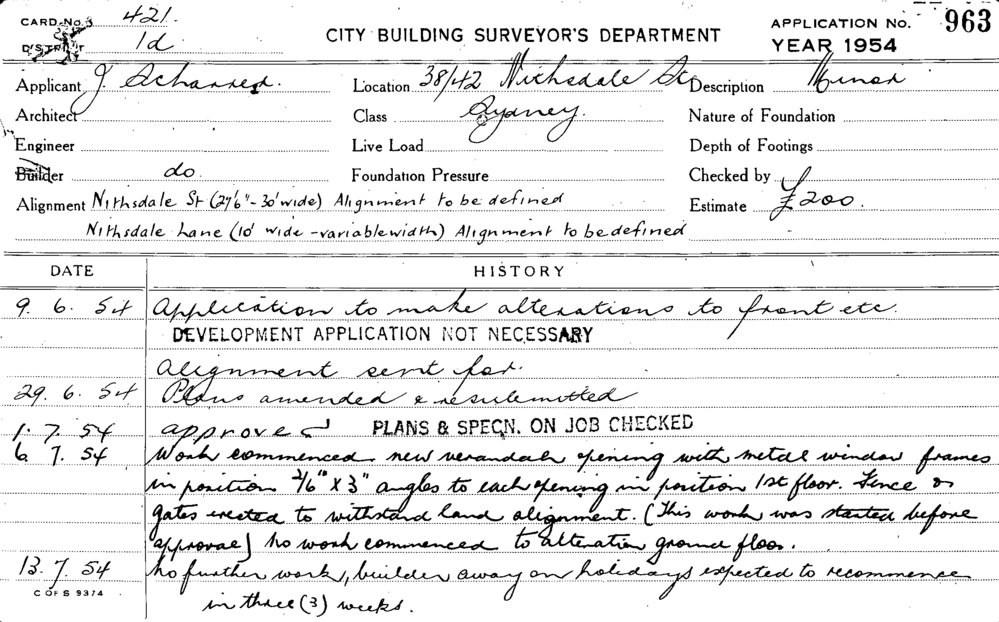 CARD No. 3 421.
DISTRICT 1d
CITY BUILDING SURVEYOR'S DEPARTMENT
APPLICATION No. 963
YEAR 1954
Applicant J. Scharrer. Location 38/42 Nithsdale St Description Minor
Architect Class Sydney. Nature of Foundation
Engineer Live Load Depth of Footings
Builder do. Foundation Pressure Checked by
Alignment Nithsdale St (27'6"-30' wide) Alignment to be defined Estimate £200.
Nithsdale Lane (10' wide -variable width) Alignment to be defined
DATE HISTORY
9. 6. 54 Application to make alterations to front etc.
DEVELOPMENT APPLICATION NOT NECESSARY
Alignment sent for.
29. 6. 54 Plans amended & resubmitted
1. 7. 54 approved PLANS & SPECN. ON JOB CHECKED
6. 7. 54 Work commenced new verandah opening with metal window frames
in position X 3" angles to each opening in position 1st floor. Fence &
gates erected to withstand land alignment. (This work was started before
approval) No work commenced to alteration ground floor.
13. 7. 54 No further work, builder away on holidays expected to recommence
in three (3) weeks.
C OF S 9374